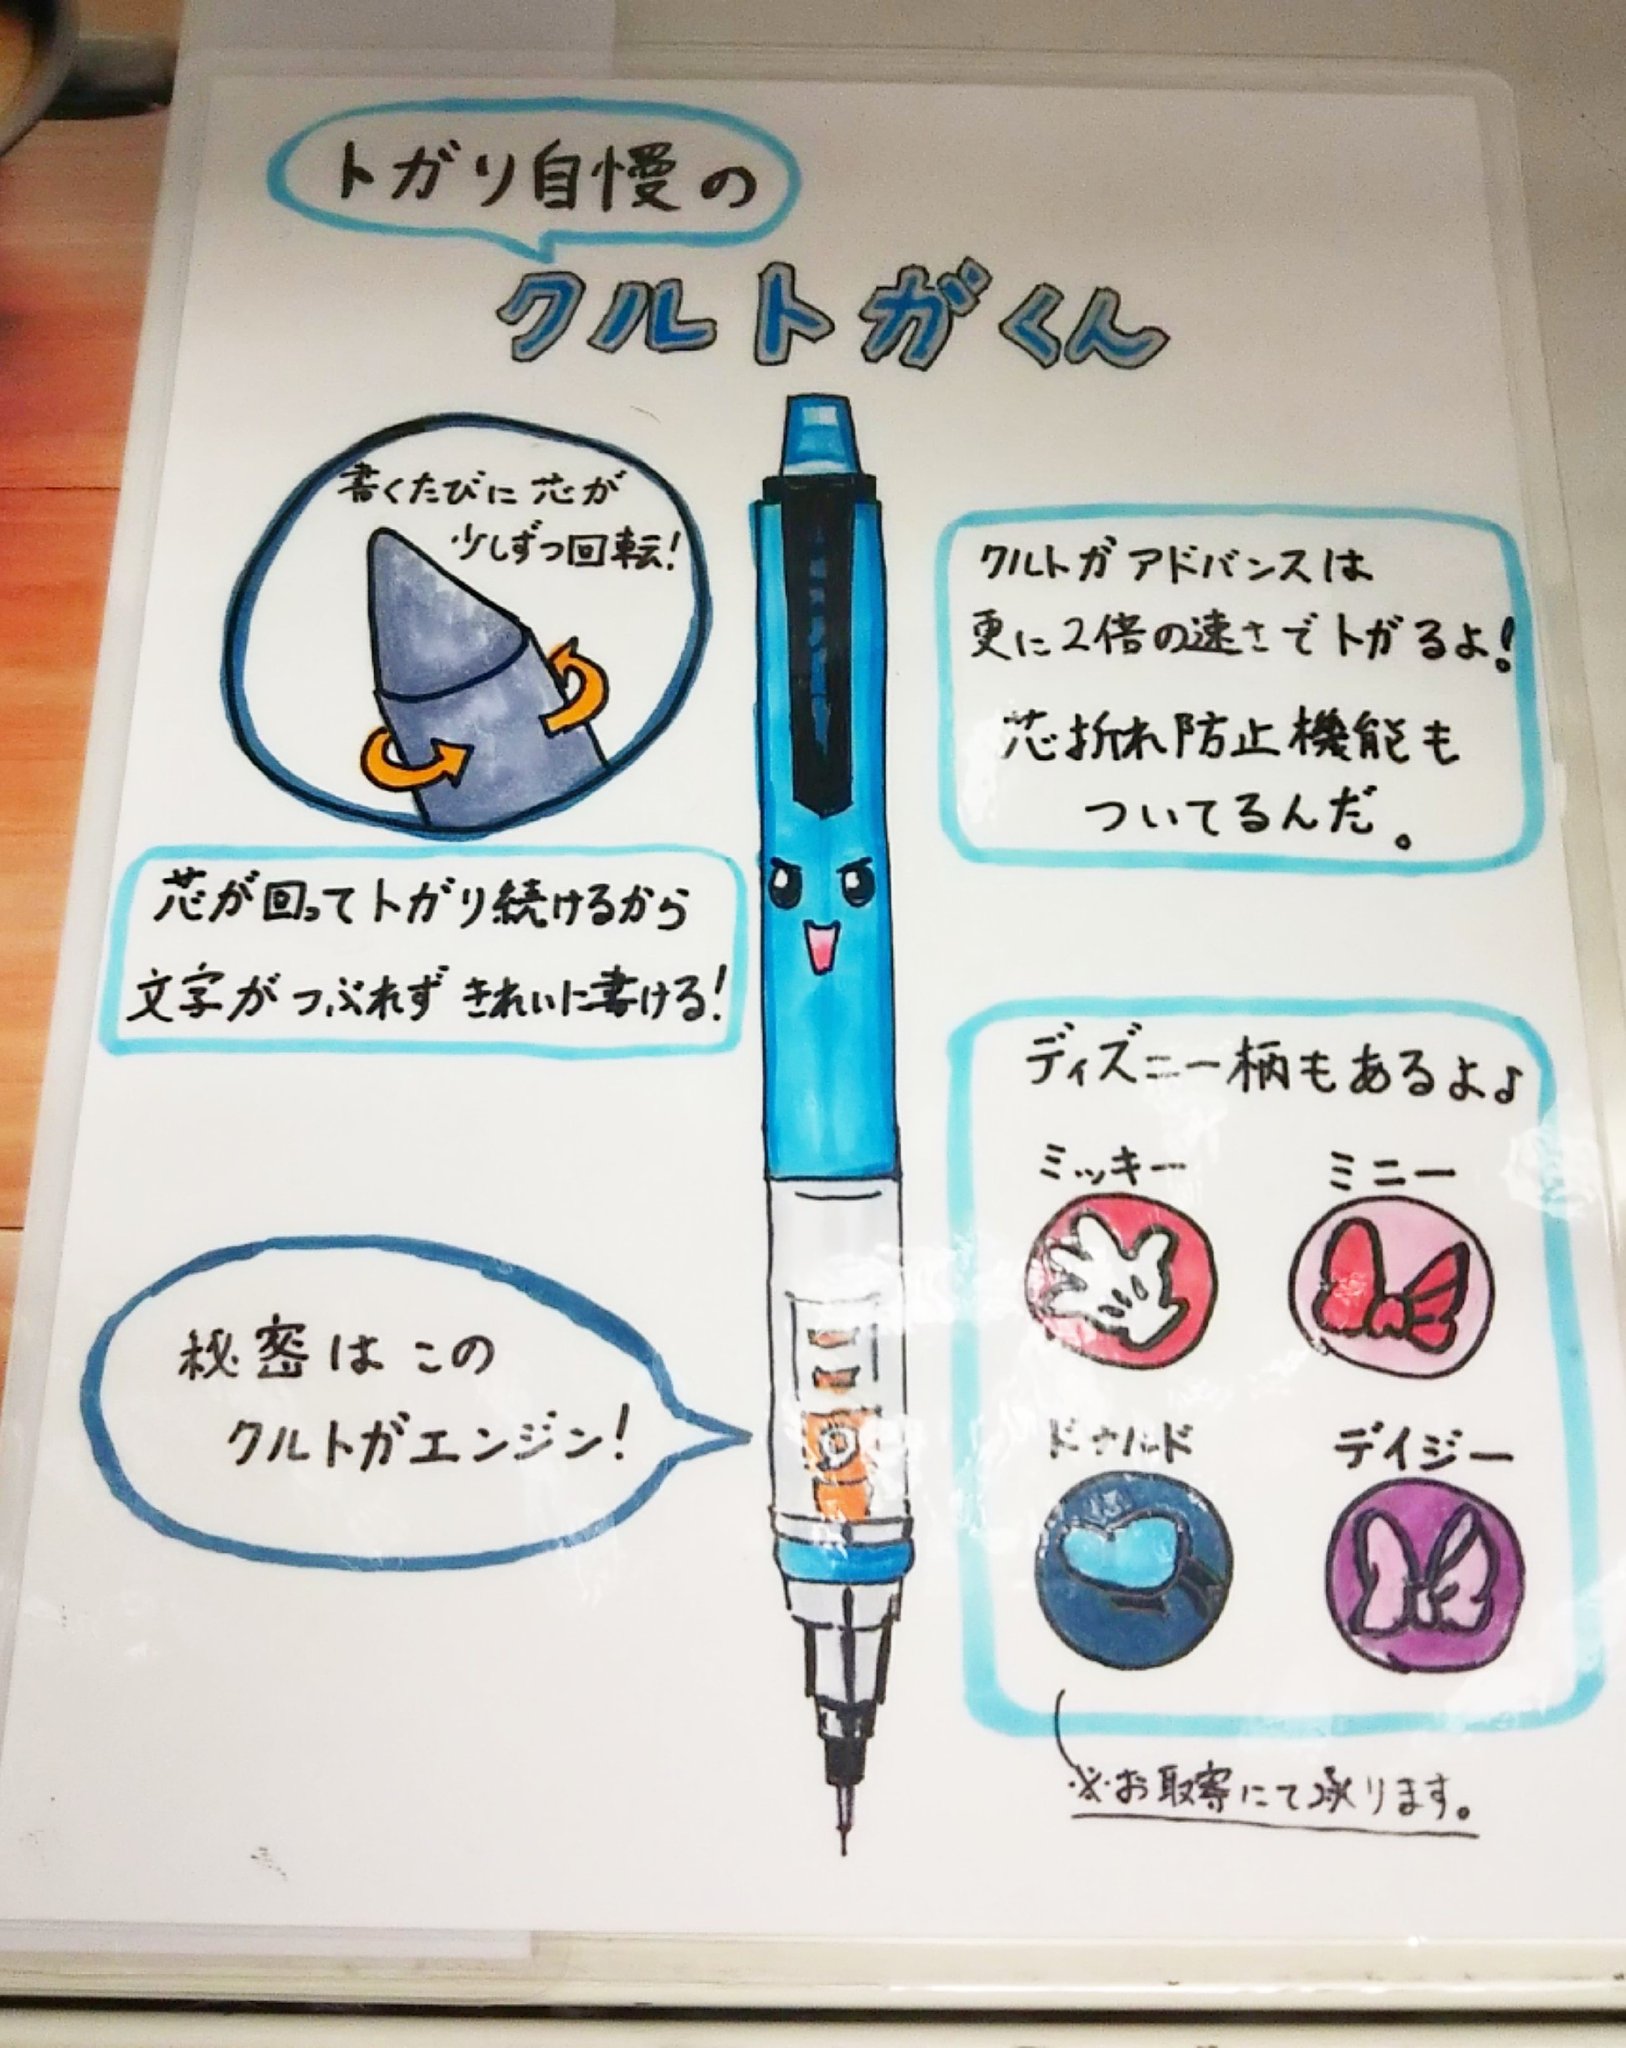 トガリ自慢の
クルトガくん
書くたびに芯が
少しずつ回転!
芯が回ってトガリ続けるから
文字がつぶれずきれいに書ける!
クルトガアドバンスは
更に2倍の速さでトガるよ!
芯折れ防止機能も
ついてるんだ。
秘密はこの
クルトガエンジン!
ディズニー柄もあるよ♪
ミッキー
ミニー
ドナルド
デイジー
※お取寄にて承ります。